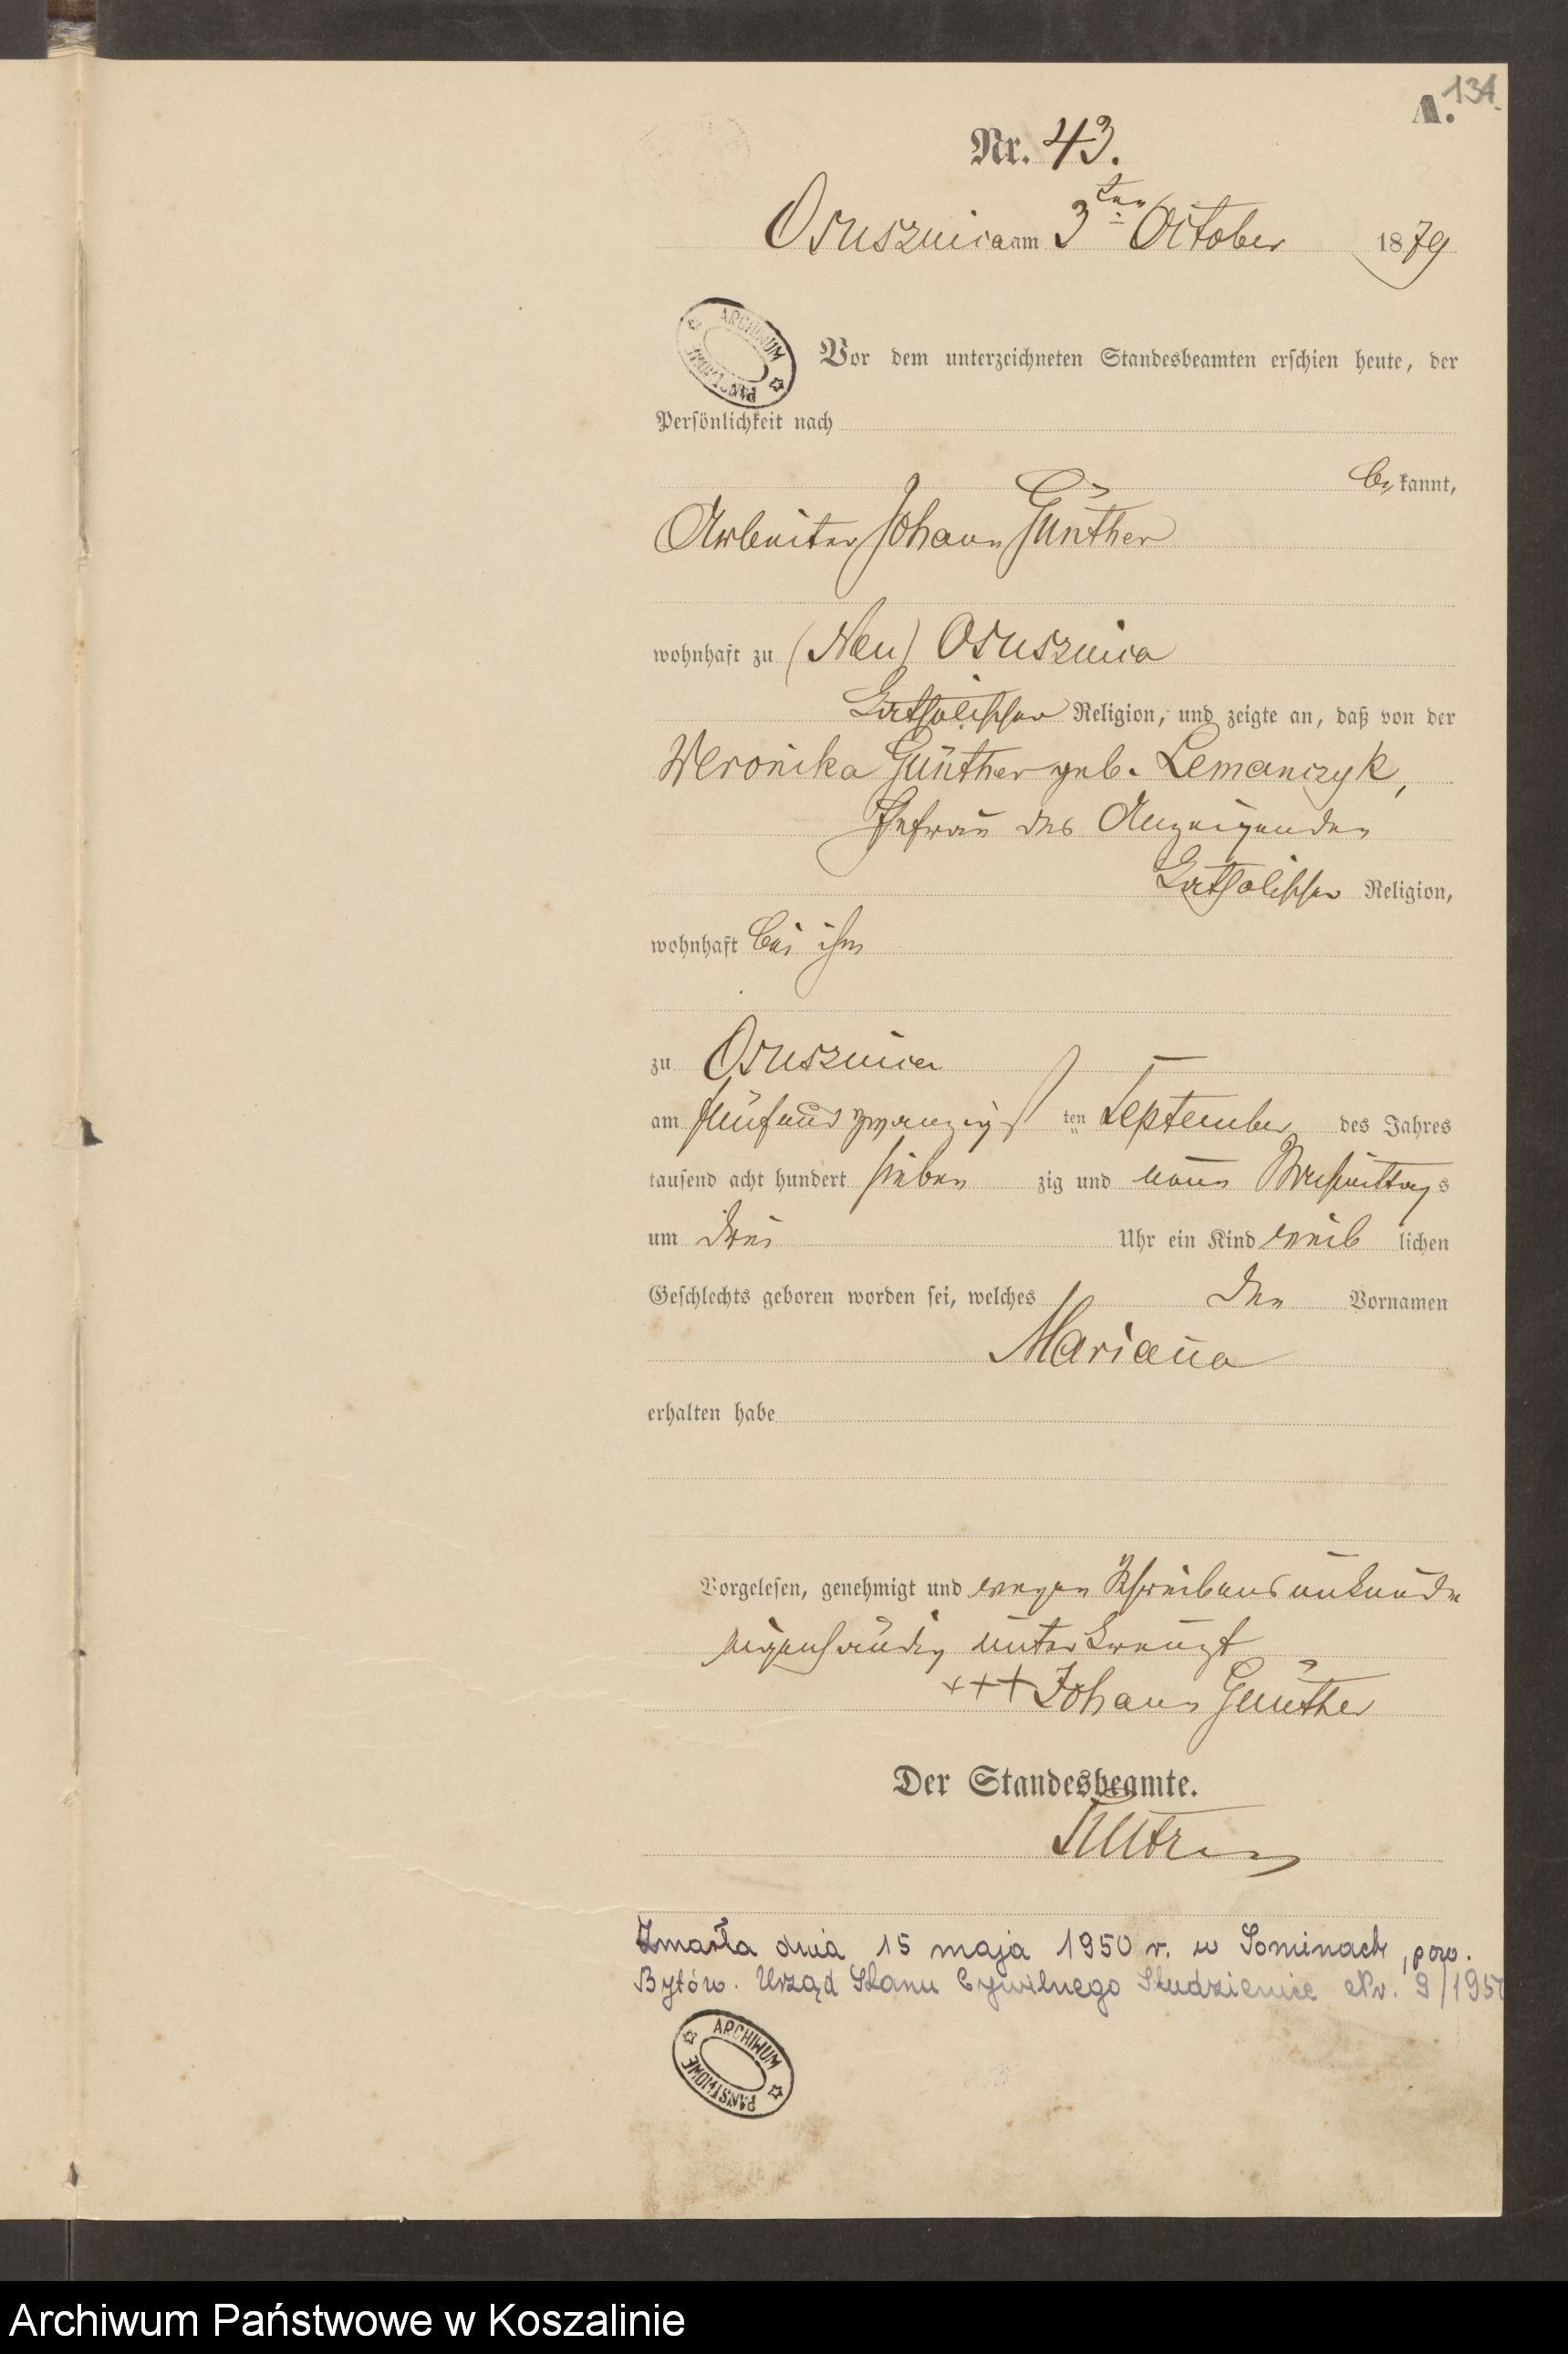 A.
131.
Nr. 43.
Osusznica am 3ten October 1879
ARCHIWUM PAŃSTWOWE
Vor dem unterzeichneten Standesbeamten erschien heute, der
Persönlichkeit nach
be kannt,
Arbeiter Johann Günther
wohnhaft zu (Neu) Osusznica
katholischer Religion, und zeigte an, daß von der
Weronika Günther geb. Lemanczyk,
Ehefrau des Anzeigenden
katholischer Religion,
wohnhaft bei ihm
zu Osusznica
am fünfundzwanzigsten September des Jahres
tausend acht hundert sieben zig und neun Vormittags
um drei Uhr ein Kind weib lichen
Geschlechts geboren worden sei, welches den Vornamen
Marianna
erhalten habe
Vorgelesen, genehmigt und wegen Schreibensunkunde
eigenhändig unterkreuzt
+++ Johann Günther
Der Standesbeamte.
Zmarła dnia 15 maja 1950 r. w Sominach, pow.
Bytów. Urząd Stanu Cywilnego Studzienice Nr. 9/195
ARCHIWUM PAŃSTWOWE
Archiwum Państwowe w Koszalinie